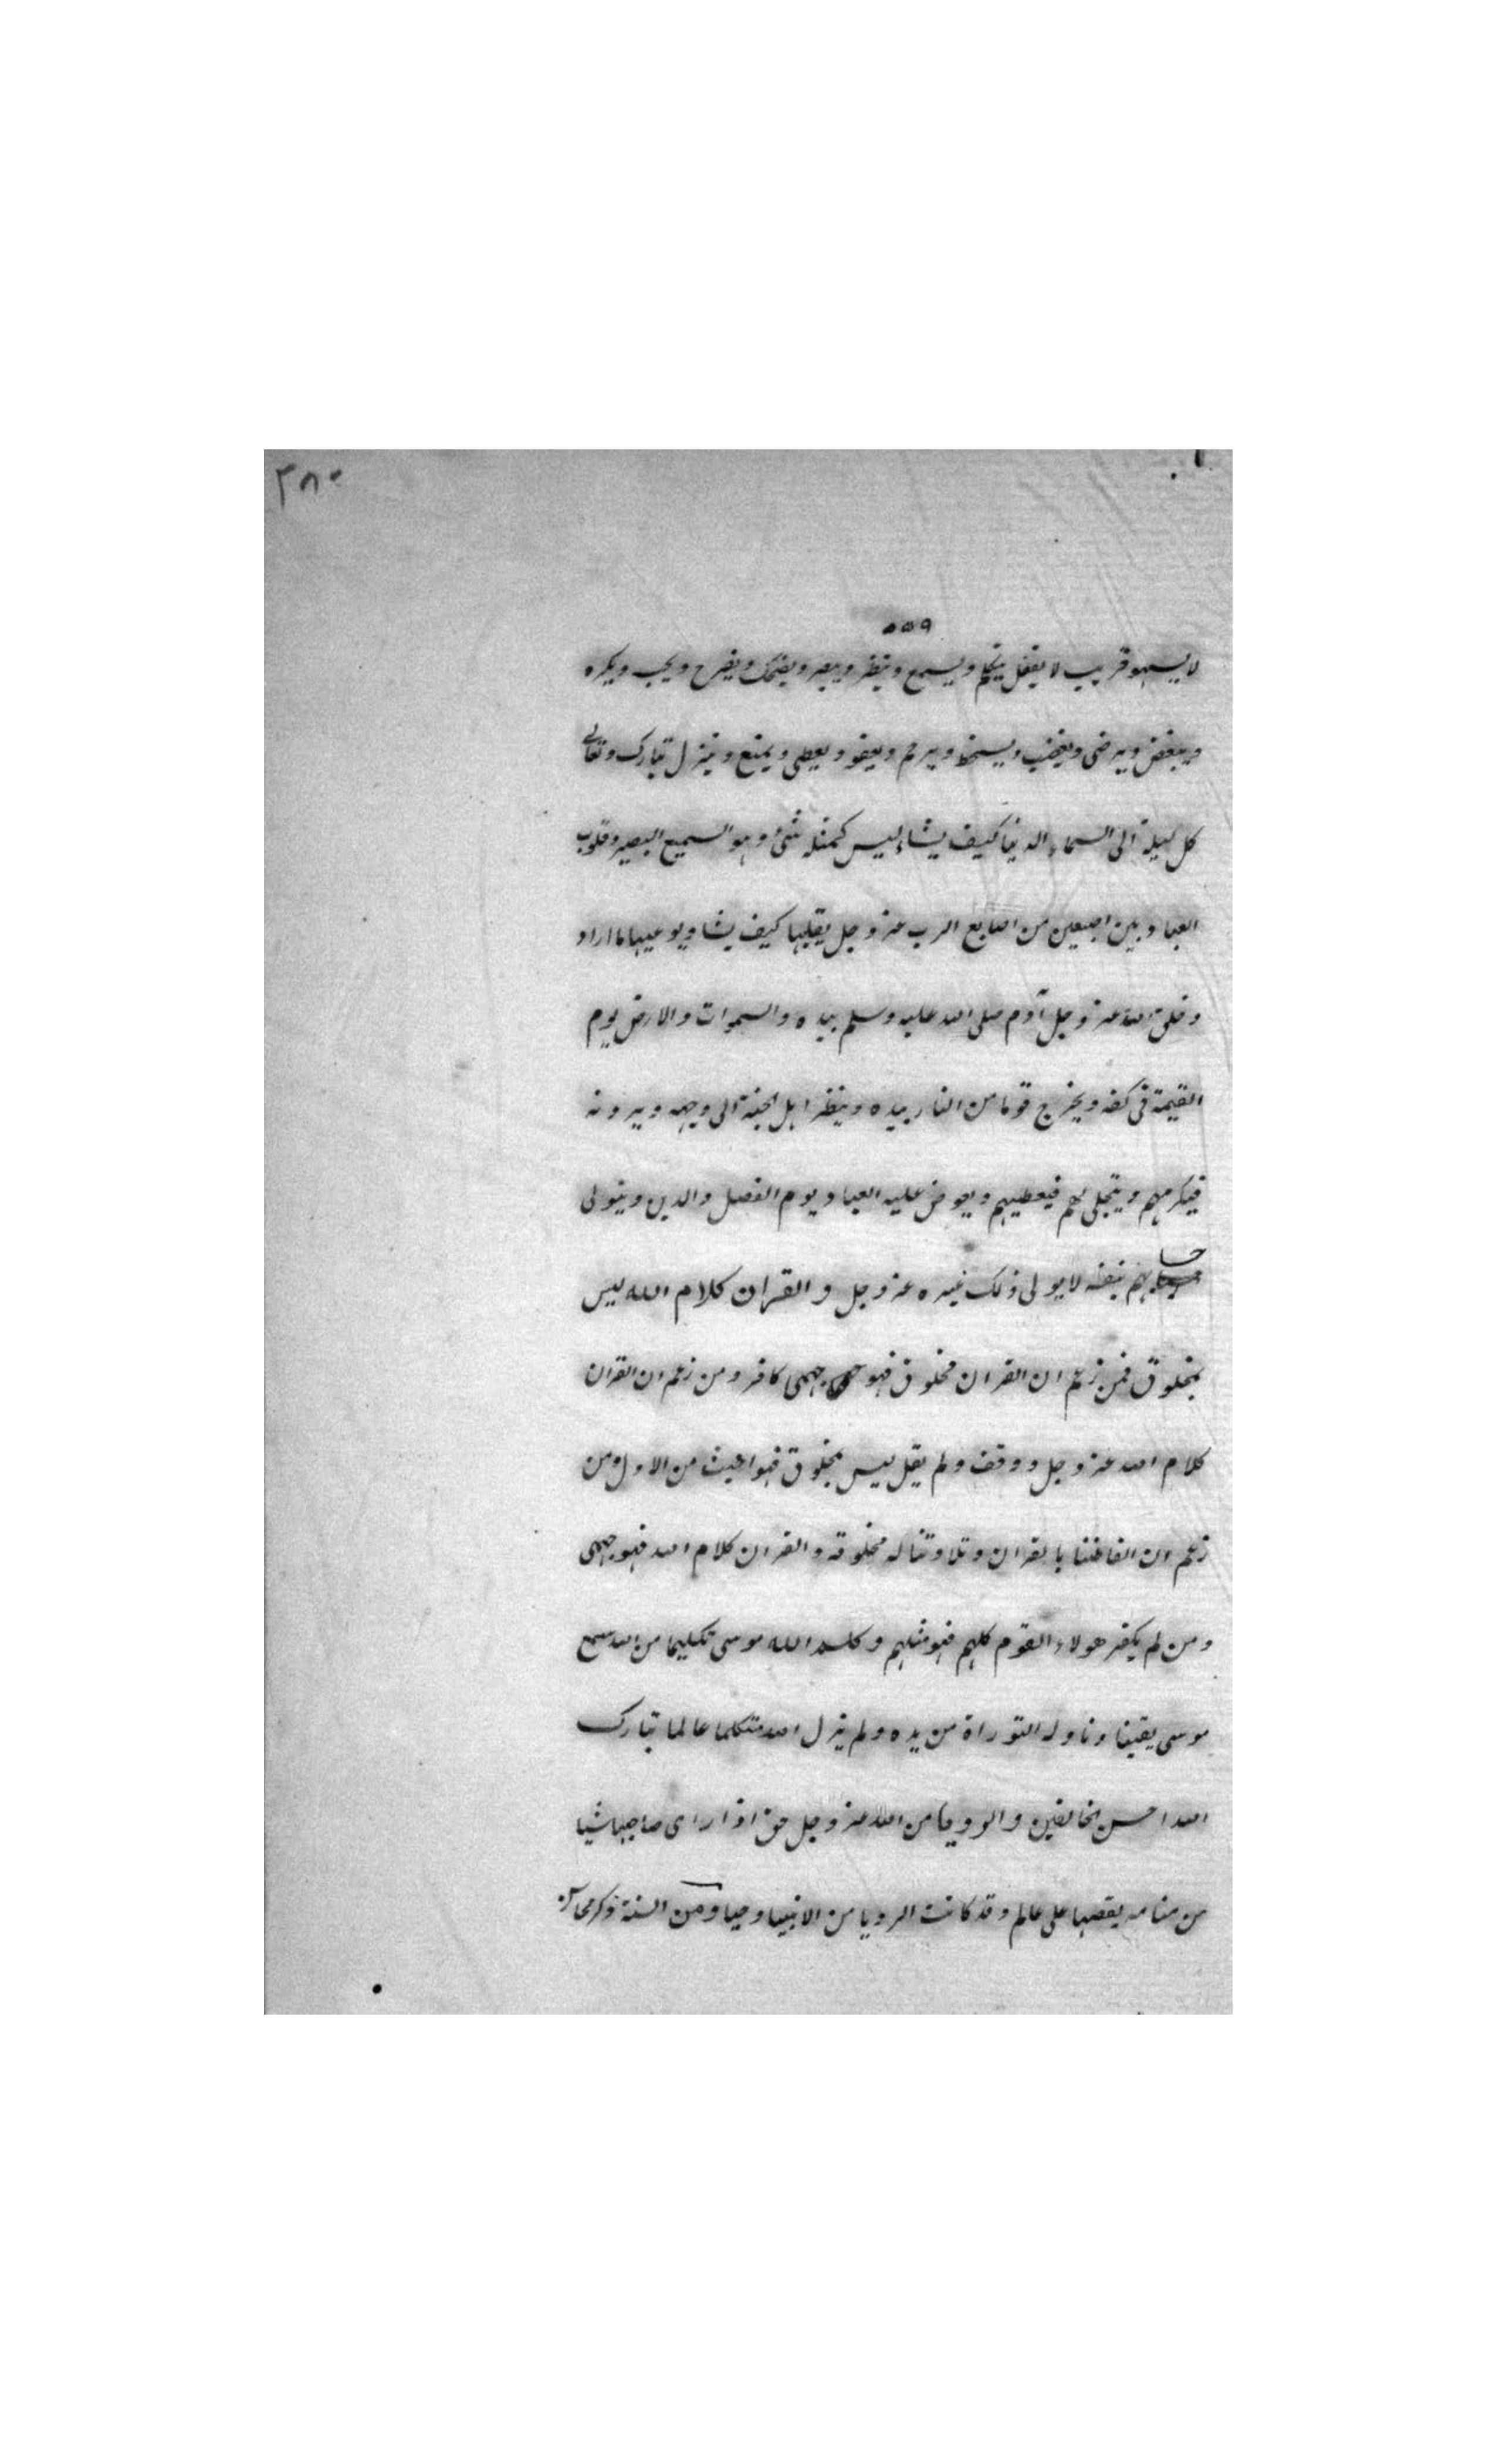 ٣٨٠
٥٥٩
لا يسهو قريب لا يغفل يتكلم ويسمع وينظر ويبصر ويضحك ويفرح ويحب ويكره
ويبغض ويرضى ويغضب ويسخط ويرحم ويعفو ويعطى ويمنع وينزل تبارك وتعالى
كل ليلة الى السماء الدنيا كيف يشاء ليس كمثله شئ وهو السميع البصير وقلوب
العباد بين اصبعين من اصابع الرب عز وجل يقلبها كيف يشا ويوعيها ما اراد
وخلق الله عز وجل آدم صلى الله عليه وسلم بيده والسموات والارض يوم
القيمة فى كفه ويخرج قوما من النار بيده وينظر اهل الجنة الى وجهه ويرونه
فيكرمهم ويتجلى لهم فيعطيهم ويعرض عليه العباد يوم الفصل والدين ويتولى
حسابهم بنفسه لا يولى ذلك غيره عز وجل والقران كلام الله ليس
بمخلوق فمن زعم ان القران مخلوق فهو جهمى كافر ومن زعم ان القران
كلام الله عز وجل ووقف ولم يقل ليس بمخلوق فهو اخبث من الاول ومن
زعم ان الفاظنا بالقران وتلاوتنا له مخلوقة والقران كلام الله فهو جهمى
ومن لم يكفر هولاء القوم كلهم فهو مثلهم وكلم الله موسى تكليما من الله سمع
موسى يقينا وناوله التوراة من يده ولم يزل الله متكلما عالما تبارك
الله احسن الخالقين والرويا من الله عز وجل حق اذا راى صاحبها شيا
من منامه يقصها على عالم وقد كانت الرويا من الانبيا وحيا ومن السنة ذكر محاسن